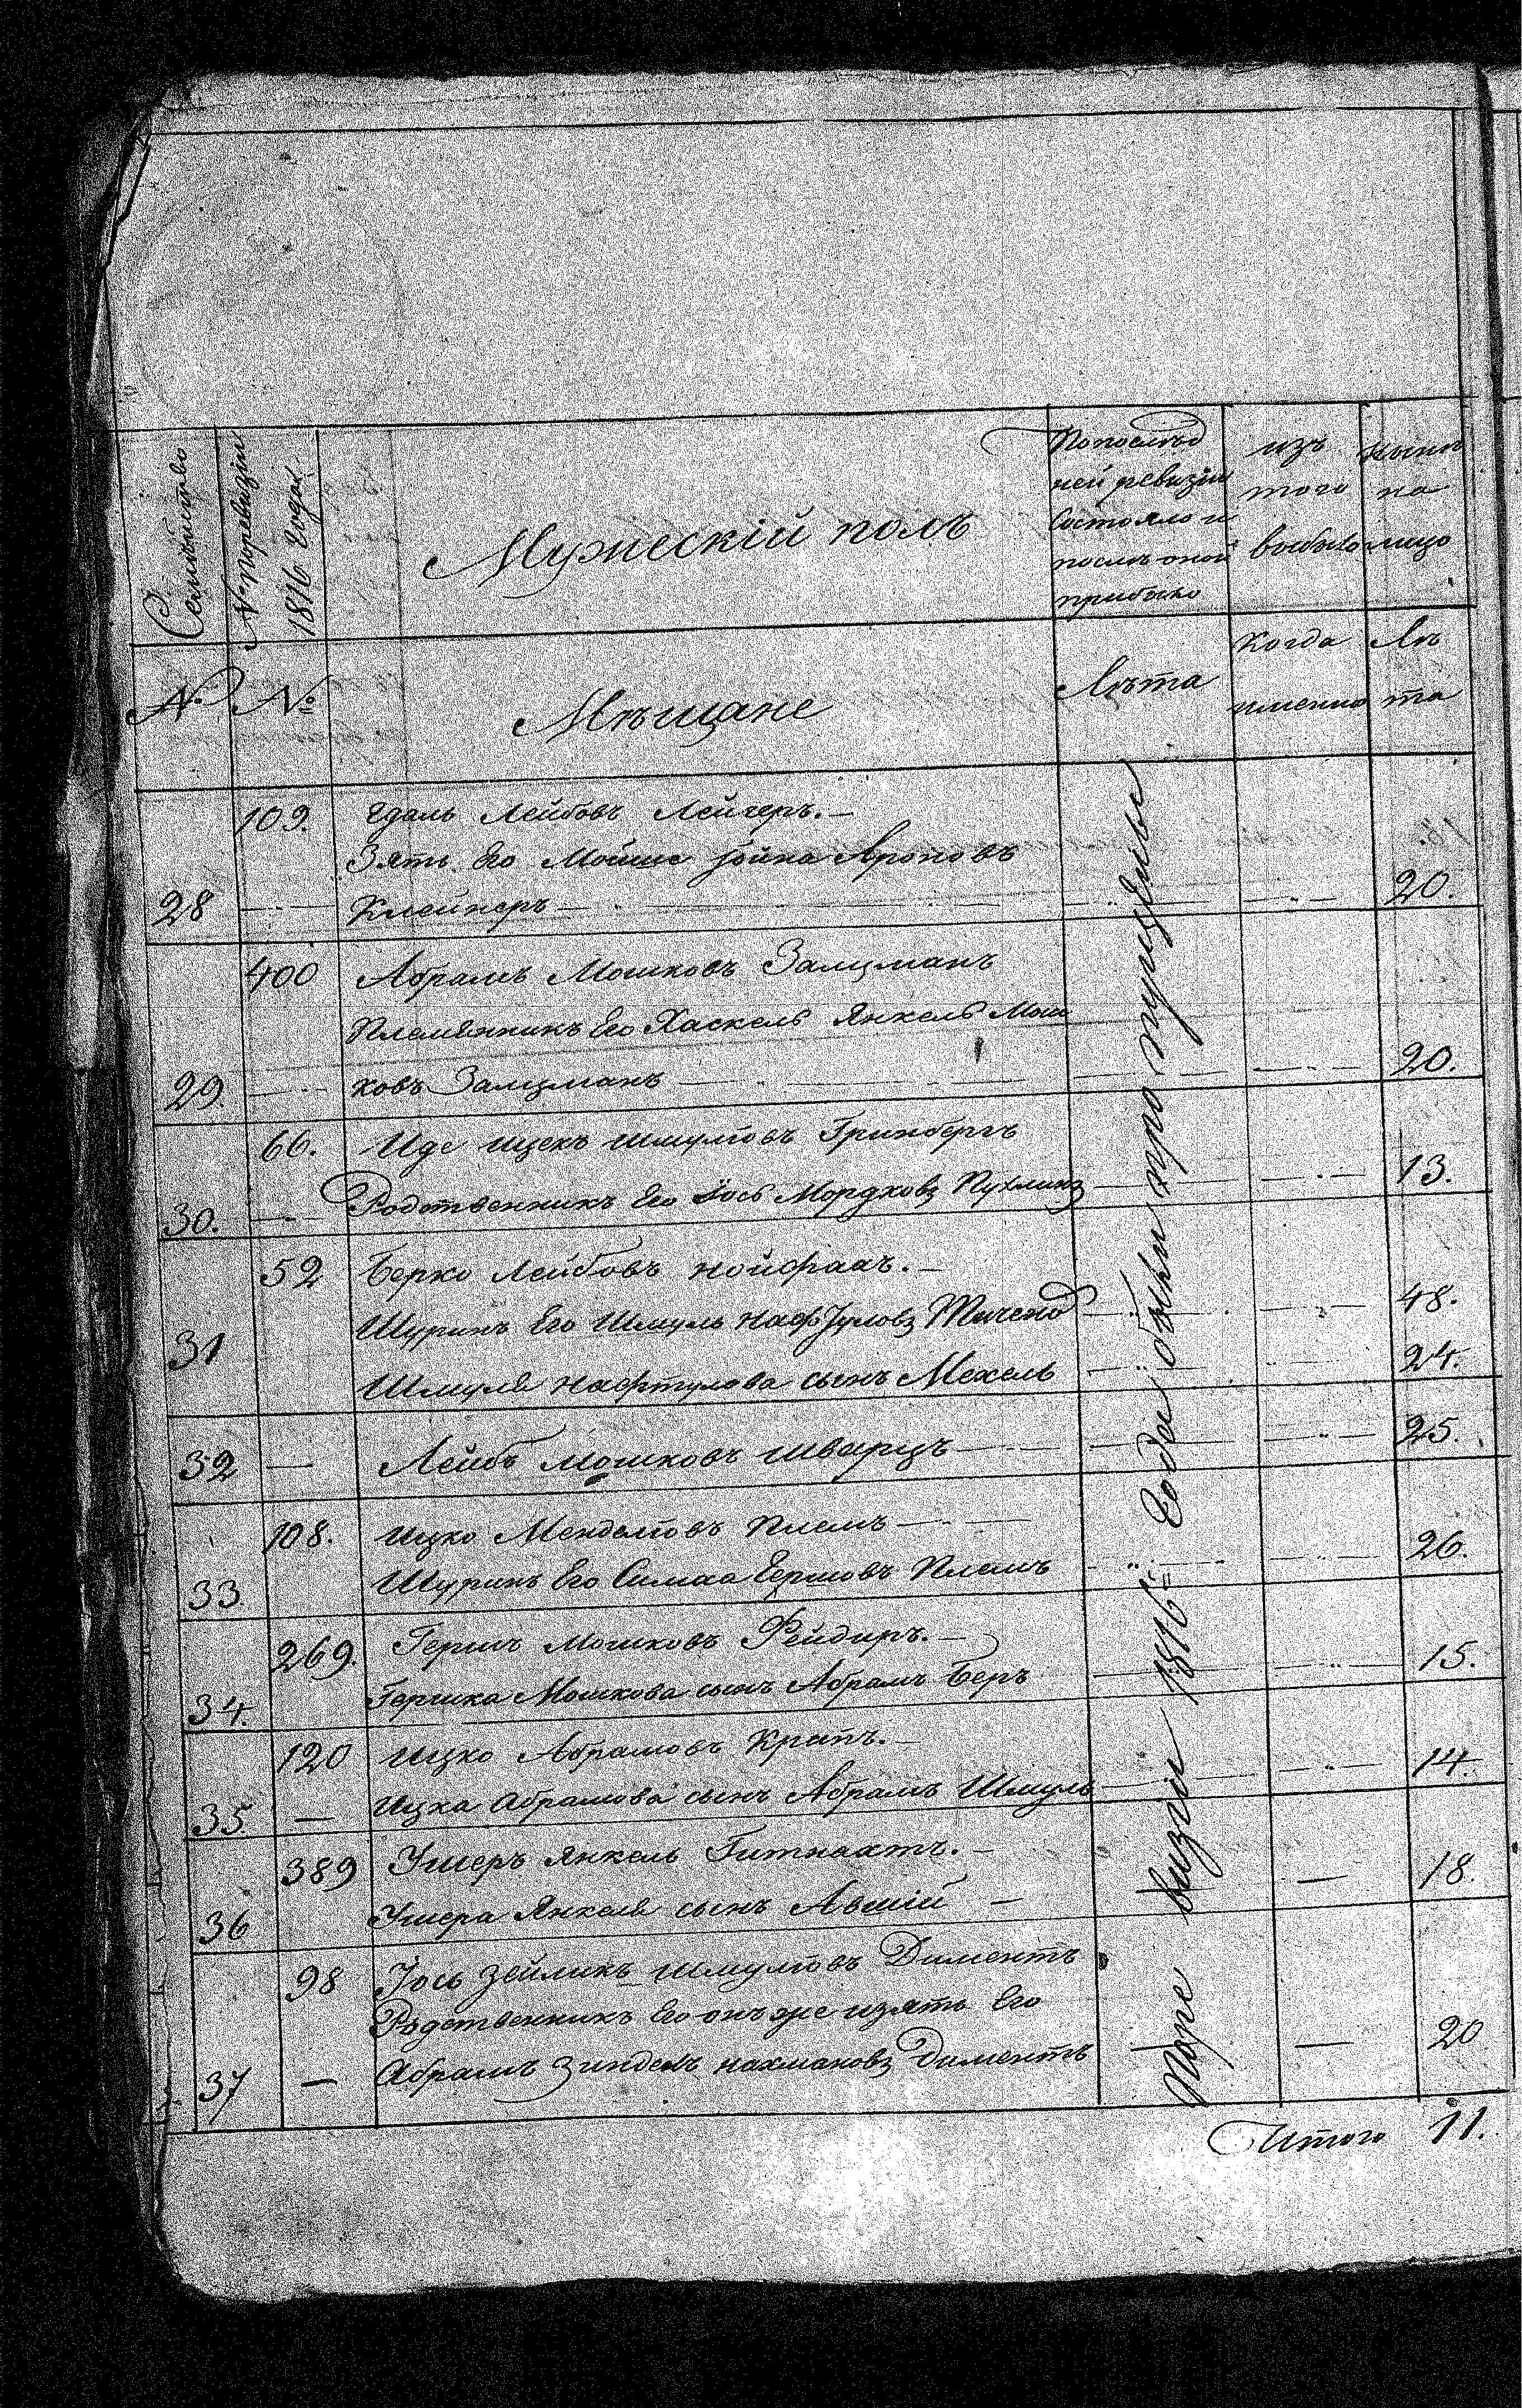 Семейство
№ поревизіи
1816 года
Мужескій полъ
Попослѣд
ней ревизіи
состояло и
послѣ оной
прибыло
изъ
того
выбыло
нынѣ
на
лицо
№ №
Мѣщане
Лѣта
Когда
именно
Лѣ
та
109. Едаль Лейбовъ Лейгеръ. —
Зять Его Мойше Іойна Ароновъ
28 Клейнеръ 20.
400 Абрамъ Мошковъ Залцманъ
Племянникъ Его Хаскель Янкель Мош
29. ковъ Залцманъ 20.
66. Иде Ицекъ Шмулiовъ Гринбергъ
30. Родственникъ Его Іось Мордковъ 13.
52 Берко Лейбовъ Нойфахъ. —
31 Шуринъ Его Шмуль Нафтуловъ 48.
Шмуля Нафтулова сынъ Мехель 24.
32 — Лейбъ Мошковъ Шварцъ 25.
108. Ицко Менделiовъ
33. Шуринъ Его Симха Гершовъ 26.
269. Гершъ Мошковъ Фейдиръ. —
34. Гершка Мошкова сынъ Абрамъ Беръ 15.
120 Ицко Абрамовъ Крапъ. —
35. — Ицка Абрамова сынъ Абрамъ Шмуль 14.
389 Ушеръ Янкель Гитнахтъ. —
36 Ушера Янкеля сынъ Авшій — 18.
98 Іось Зейликъ Шмулiовъ Диментъ
Родственникъ Его онъ же изять Его
37 — Абрамъ Зиндель Нахмановъ Диментъ — 20
Поре визіи 1816. Года были про пущены
Итого 11.